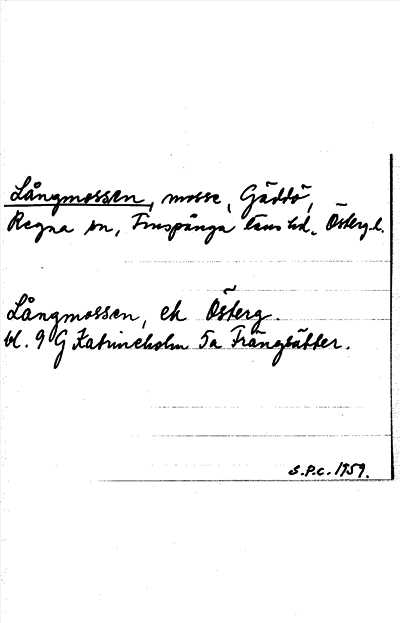 Långmossen, mosse, Gäddö,
Regna sn, Finspånga läns hd. Österg.l.
Långmossen, ek Österg.
bl. 9 G Katrineholm 5a Frängsätter.
S.P.C. 1959.